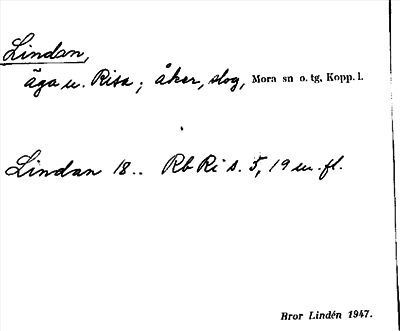 Lindan,
äga u. Risa; åker, slog, Mora sn o. tg, Kopp. l.
Lindan 18.. Rb Ri s. 5, 19 m. fl.
Bror Lindén 1947.